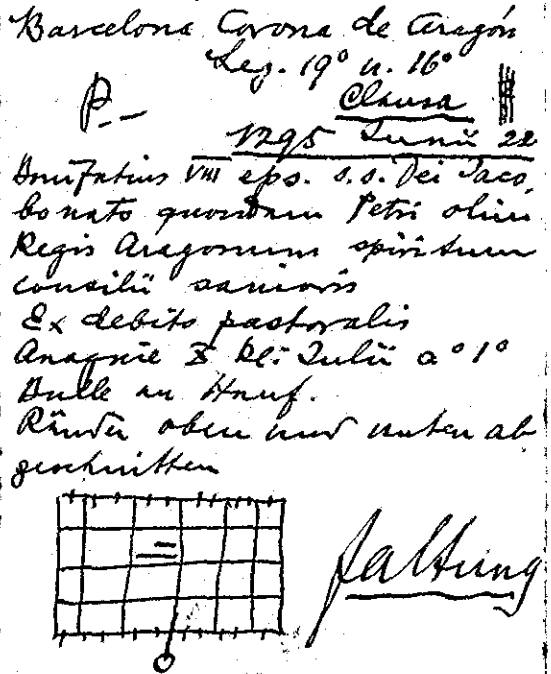 Barcelona Corona de Aragón
Leg. 19° n. 16°
P.-
Clausa
1295 Junii 22
Bonifatius VIII eps. s. s. Dei Jaco,
bo nato quondam Petri olim
Regis Aragonum spiritum
consilii sanioris
Ex debito pastoralis
Anagnie X Kl: Julii a° 1°
Bulle an Hanf.
Ränder oben und unten ab
geschnitten
Faltung